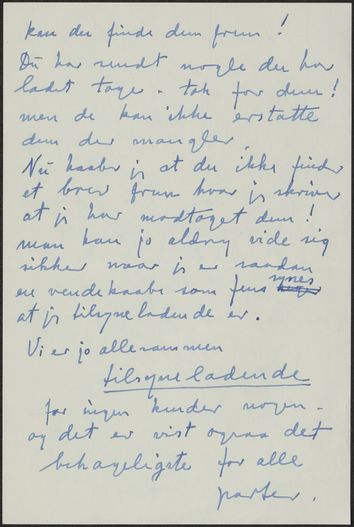 kan du finde dem frem!
Du har sendt nogle du har
ladet tage - tak for dem!
men de kan ikke erstatte
dem der mangler.
Nu haaber jeg at du ikke finder
et brev frem hvor jeg skriver
at jeg har modtaget dem!
man kan jo aldrig vide sig
sikker naar jeg er saadan
en vendekaabe som synes
at jeg tilsyneladende er.
Vi er jo allesammen
tilsyneladende
for ingen kender nogen -
og det er vist ogsaa det
behageligste for alle
parter.